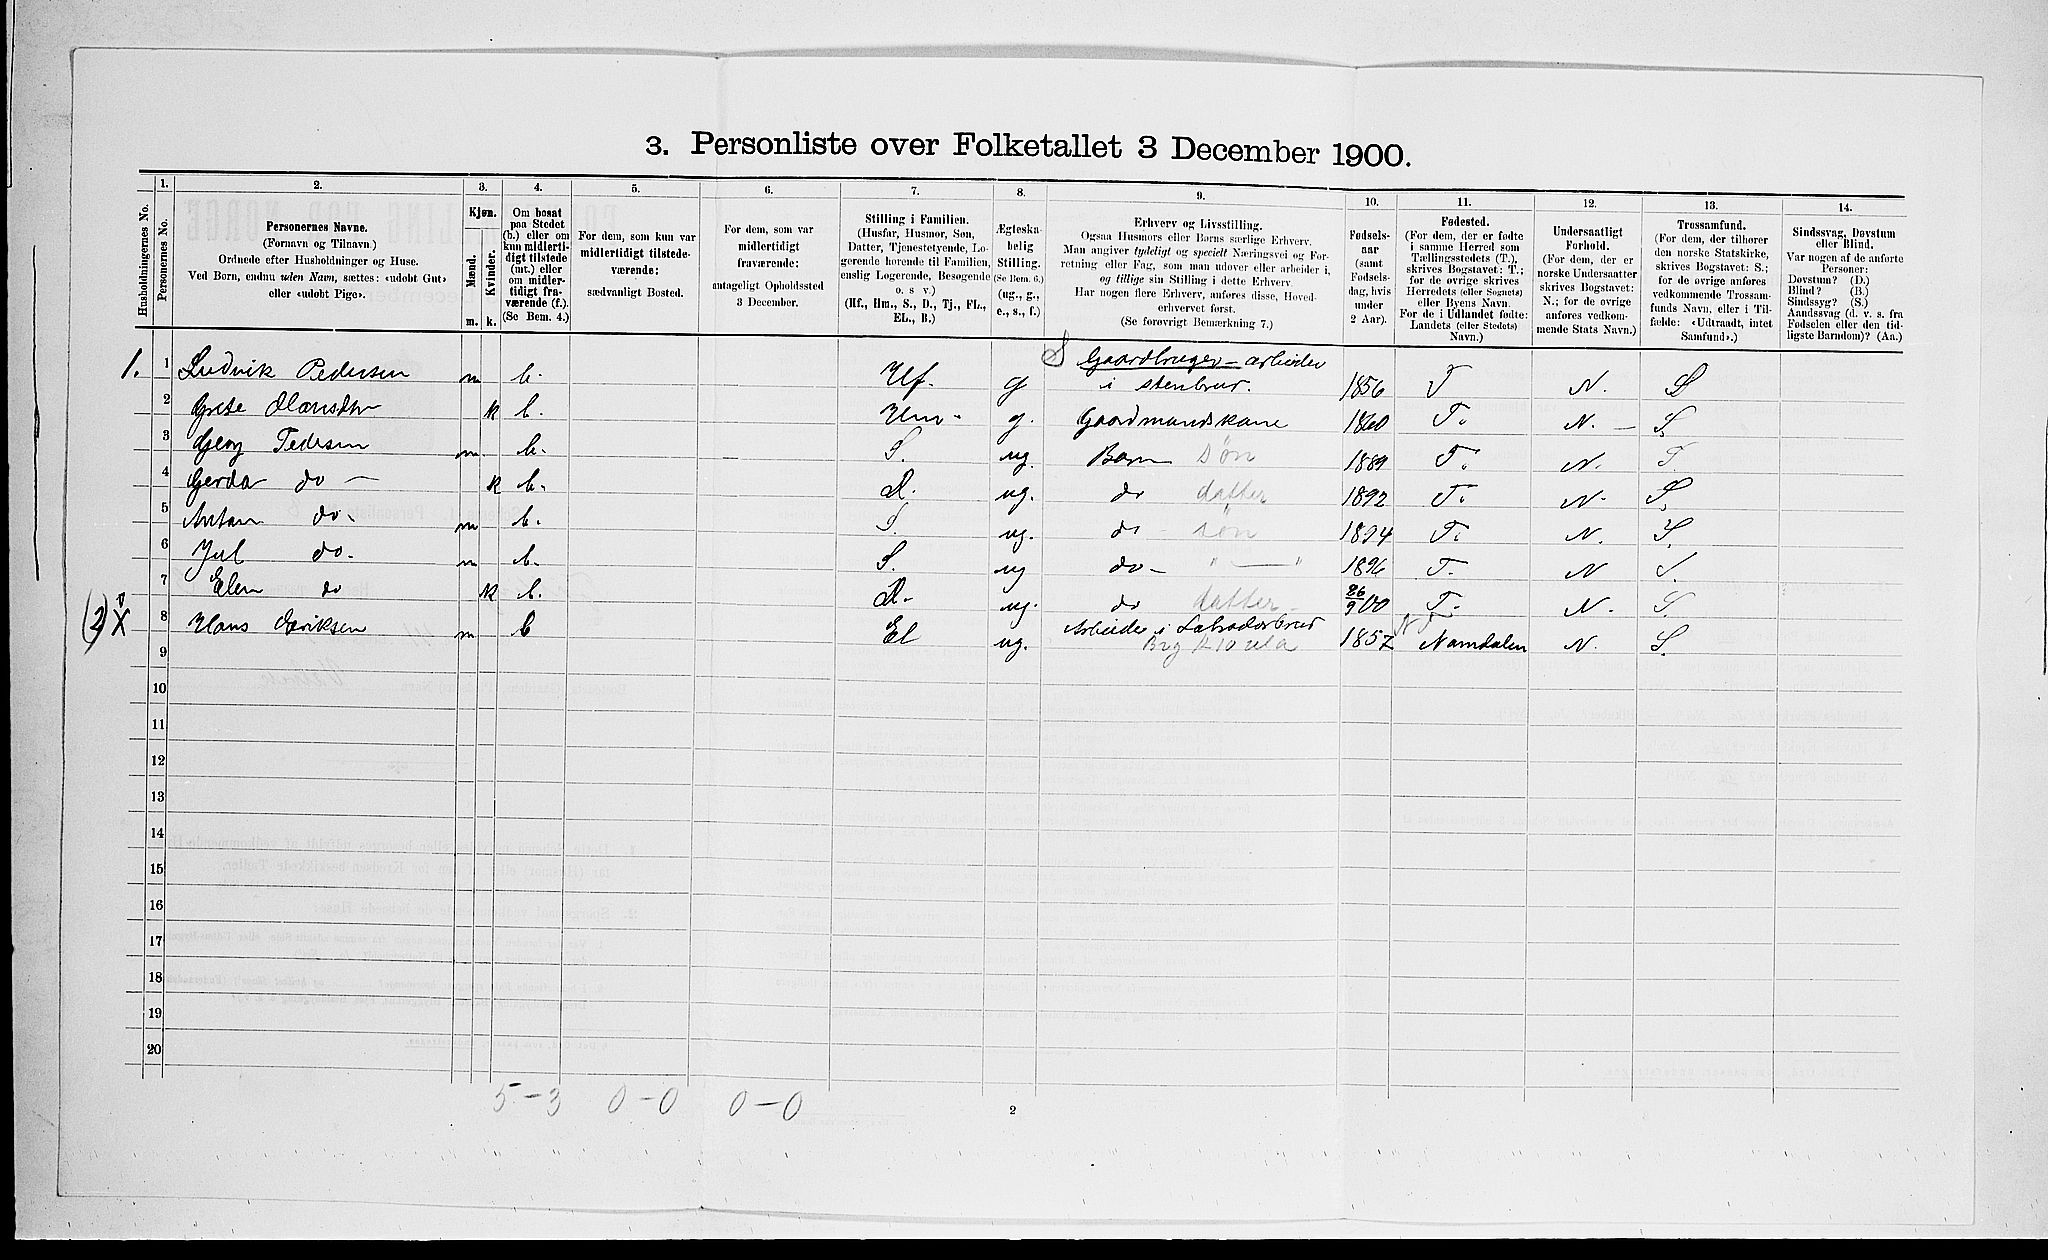 3. Personliste over Folketallet 3 December 1900.
Husholdningernes No.
1. Personernes No.
2. Personernes Navne. (Fornavn og Tilnavn.) Ordnede efter Husholdninger og Huse. Ved Børn, endnu uden Navn, sættes: «udøbt Gut» eller «udøbt Pige».
3. Kjøn. Mænd. m. Kvinder. k.
4. Om bosat paa Stedet (b.) eller om kun midlertidigt tilstede (mt.) eller om midlertidigt fraværende (f.) (Se Bem. 4.)
5. For dem, som kun var midlertidigt tilstedeværende: sædvanligt Bosted.
6. For dem, som var midlertidigt fraværende: antageligt Opholdssted 3 December.
7. Stilling i Familien. (Husfar, Husmor, Søn, Datter, Tjenestetyende, Logerende hørende til Familien, enslig Logerende, Besøgende o. s. v.) (Hf., Hm., S., D., Tj., FL., EL., B.)
8. Ægteskabelig Stilling. (Se Bem. 6.) (ug., g., e., s., f.)
9. Erhverv og Livsstilling. Ogsaa Husmors eller Børns særlige Erhverv. Man angiver tydeligt og specielt Næringsvei og Forretning eller Fag, som man udøver eller arbeider i, og tillige sin Stilling i dette Erhverv. Har nogen flere Erhverv, anføres disse, Hovederhvervet først. (Se forøvrigt Bemærkning 7.)
10. Fødselsaar (samt Fødselsdag, hvis under 2 Aar).
11. Fødested. (For dem, der er fødte i samme Herred som Tællingsstedets (T.), skrives Bogstavet: T.; for de øvrige skrives Herredets (eller Sognets) eller Byens Navn. For de i Udlandet fødte: Landets (eller Stedets) Navn.)
12. Undersaatligt Forhold. (For dem, der er norske Undersaatter skrives Bogstavet: N.; for de øvrige anføres vedkommende Stats Navn.)
13. Trossamfund. (For dem, der tilhører den norske Statskirke, skrives Bogstavet: S.; for de øvrige anføres vedkommende Trossamfunds Navn, eller i Tilfælde: «Udtraadt, intet Samfund».)
14. Sindssvag, Døvstum eller Blind. Var nogen af de anførte Personer: Døvstum? (D.) Blind? (B.) Sindssyg? (S.) Aandssvag (d. v. s. fra Fødselen eller den tidligste Barndom)? (Aa.)
1. 1 Ludvik Pedersen m b. Hf. g Gaardbruger – arbeider i stenbrud. 1856 T N. S
2 Grete Hansdtr k b. Hm. g. Gaardmandskone 1860 T. N. – S.
3 Georg Pedersen m b. S. ug. Barn søn 1889 T. N. S.
4 Gerda do – k b. D. ug. do datter 1892 T. N. S.
5 Anton do. m b. S. ug. do søn 1894 T. N. S.
6 Jul do. m b. S. ug do – " — " 1896 T. N S.
7 Elen do k b. D. ug. do datter 26/9 00 T. N. S.
(2) X 8 Hans Eriksen m b El ug. Arbeider i Labradorbrud 1857 Namdalen N. S.
9
10
11
12
13
14
15
16
17
18
19
20
5 – 3 0 – 0 0 – 0
2